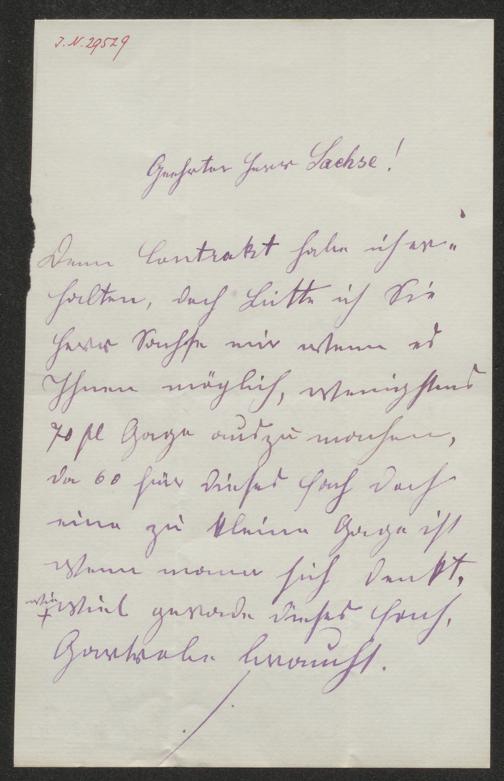 J.N. 29529
Geehrter Herr Sachse!
Denn Contrakt habe ich er-
halten, doch bitte ich Sie
Herr Sachse mir wenn es
Ihnen möglich, wenigstens
70 fl Gage auszumachen,
da 60 für dieses Fach doch
eine zu kleine Gage ist
wenn mann sich denkt,
wie viel gerade dieses Fach,
Gartrobe braucht.